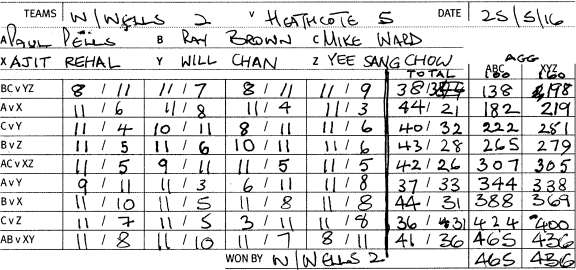 TEAMS W/WELLS 2 V HEATHCOTE 5 DATE 25/5/16
A PAUL PELLS B RAY BROWN C MIKE WARD
X AJIT REHAL Y WILL CHAN Z YEE SANG CHOW AGG
TOTAL ABC XYZ
100 160
BC v YZ 8 / 11 11 / 7 8 / 11 11 / 9 38 / 138 198
A v X 11 / 6 11 / 8 11 / 4 11 / 3 44 / 21 182 219
C v Y 11 / 4 10 / 11 8 / 11 11 / 6 40 / 32 222 251
B v Z 11 / 5 11 / 6 10 / 11 11 / 6 43 / 28 265 279
AC v XZ 11 / 5 9 / 11 11 / 5 11 / 5 42 / 26 307 305
A v Y 9 / 11 11 / 3 6 / 11 11 / 8 37 / 33 344 338
B v X 11 / 10 11 / 5 11 / 8 11 / 8 44 / 31 388 369
C v Z 11 / 7 11 / 5 3 / 11 11 / 8 36 / 31 424 400
AB v XY 11 / 8 11 / 10 11 / 7 8 / 11 41 / 36 465 436
WON BY W/WELLS 2 465 436